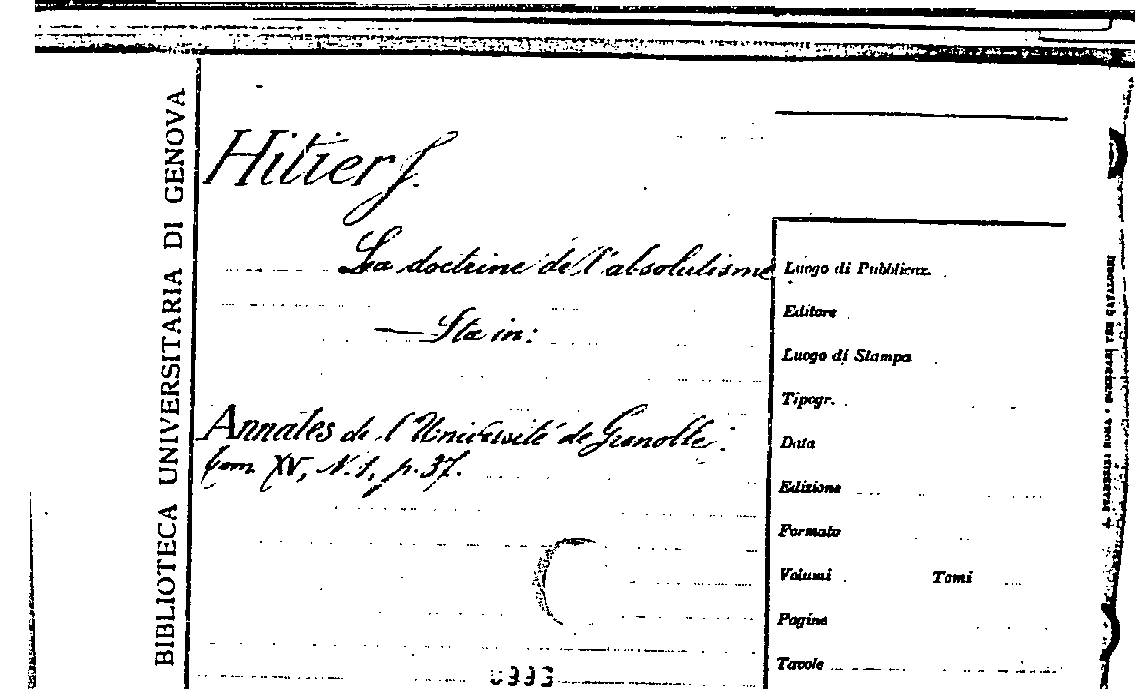 BIBLIOTECA UNIVERSITARIA DI GENOVA
Hitier J.
La doctrine de l'absolutisme
— Sta in:
Annales de l'Université de Grenoble.
tom. XV, N. 1, p. 37.
Luogo di Pubblicaz.
Editore
Luogo di Stampa
Tipogr.
Data
Edizione
Formato
Volumi Tomi
Pagine
Tavole